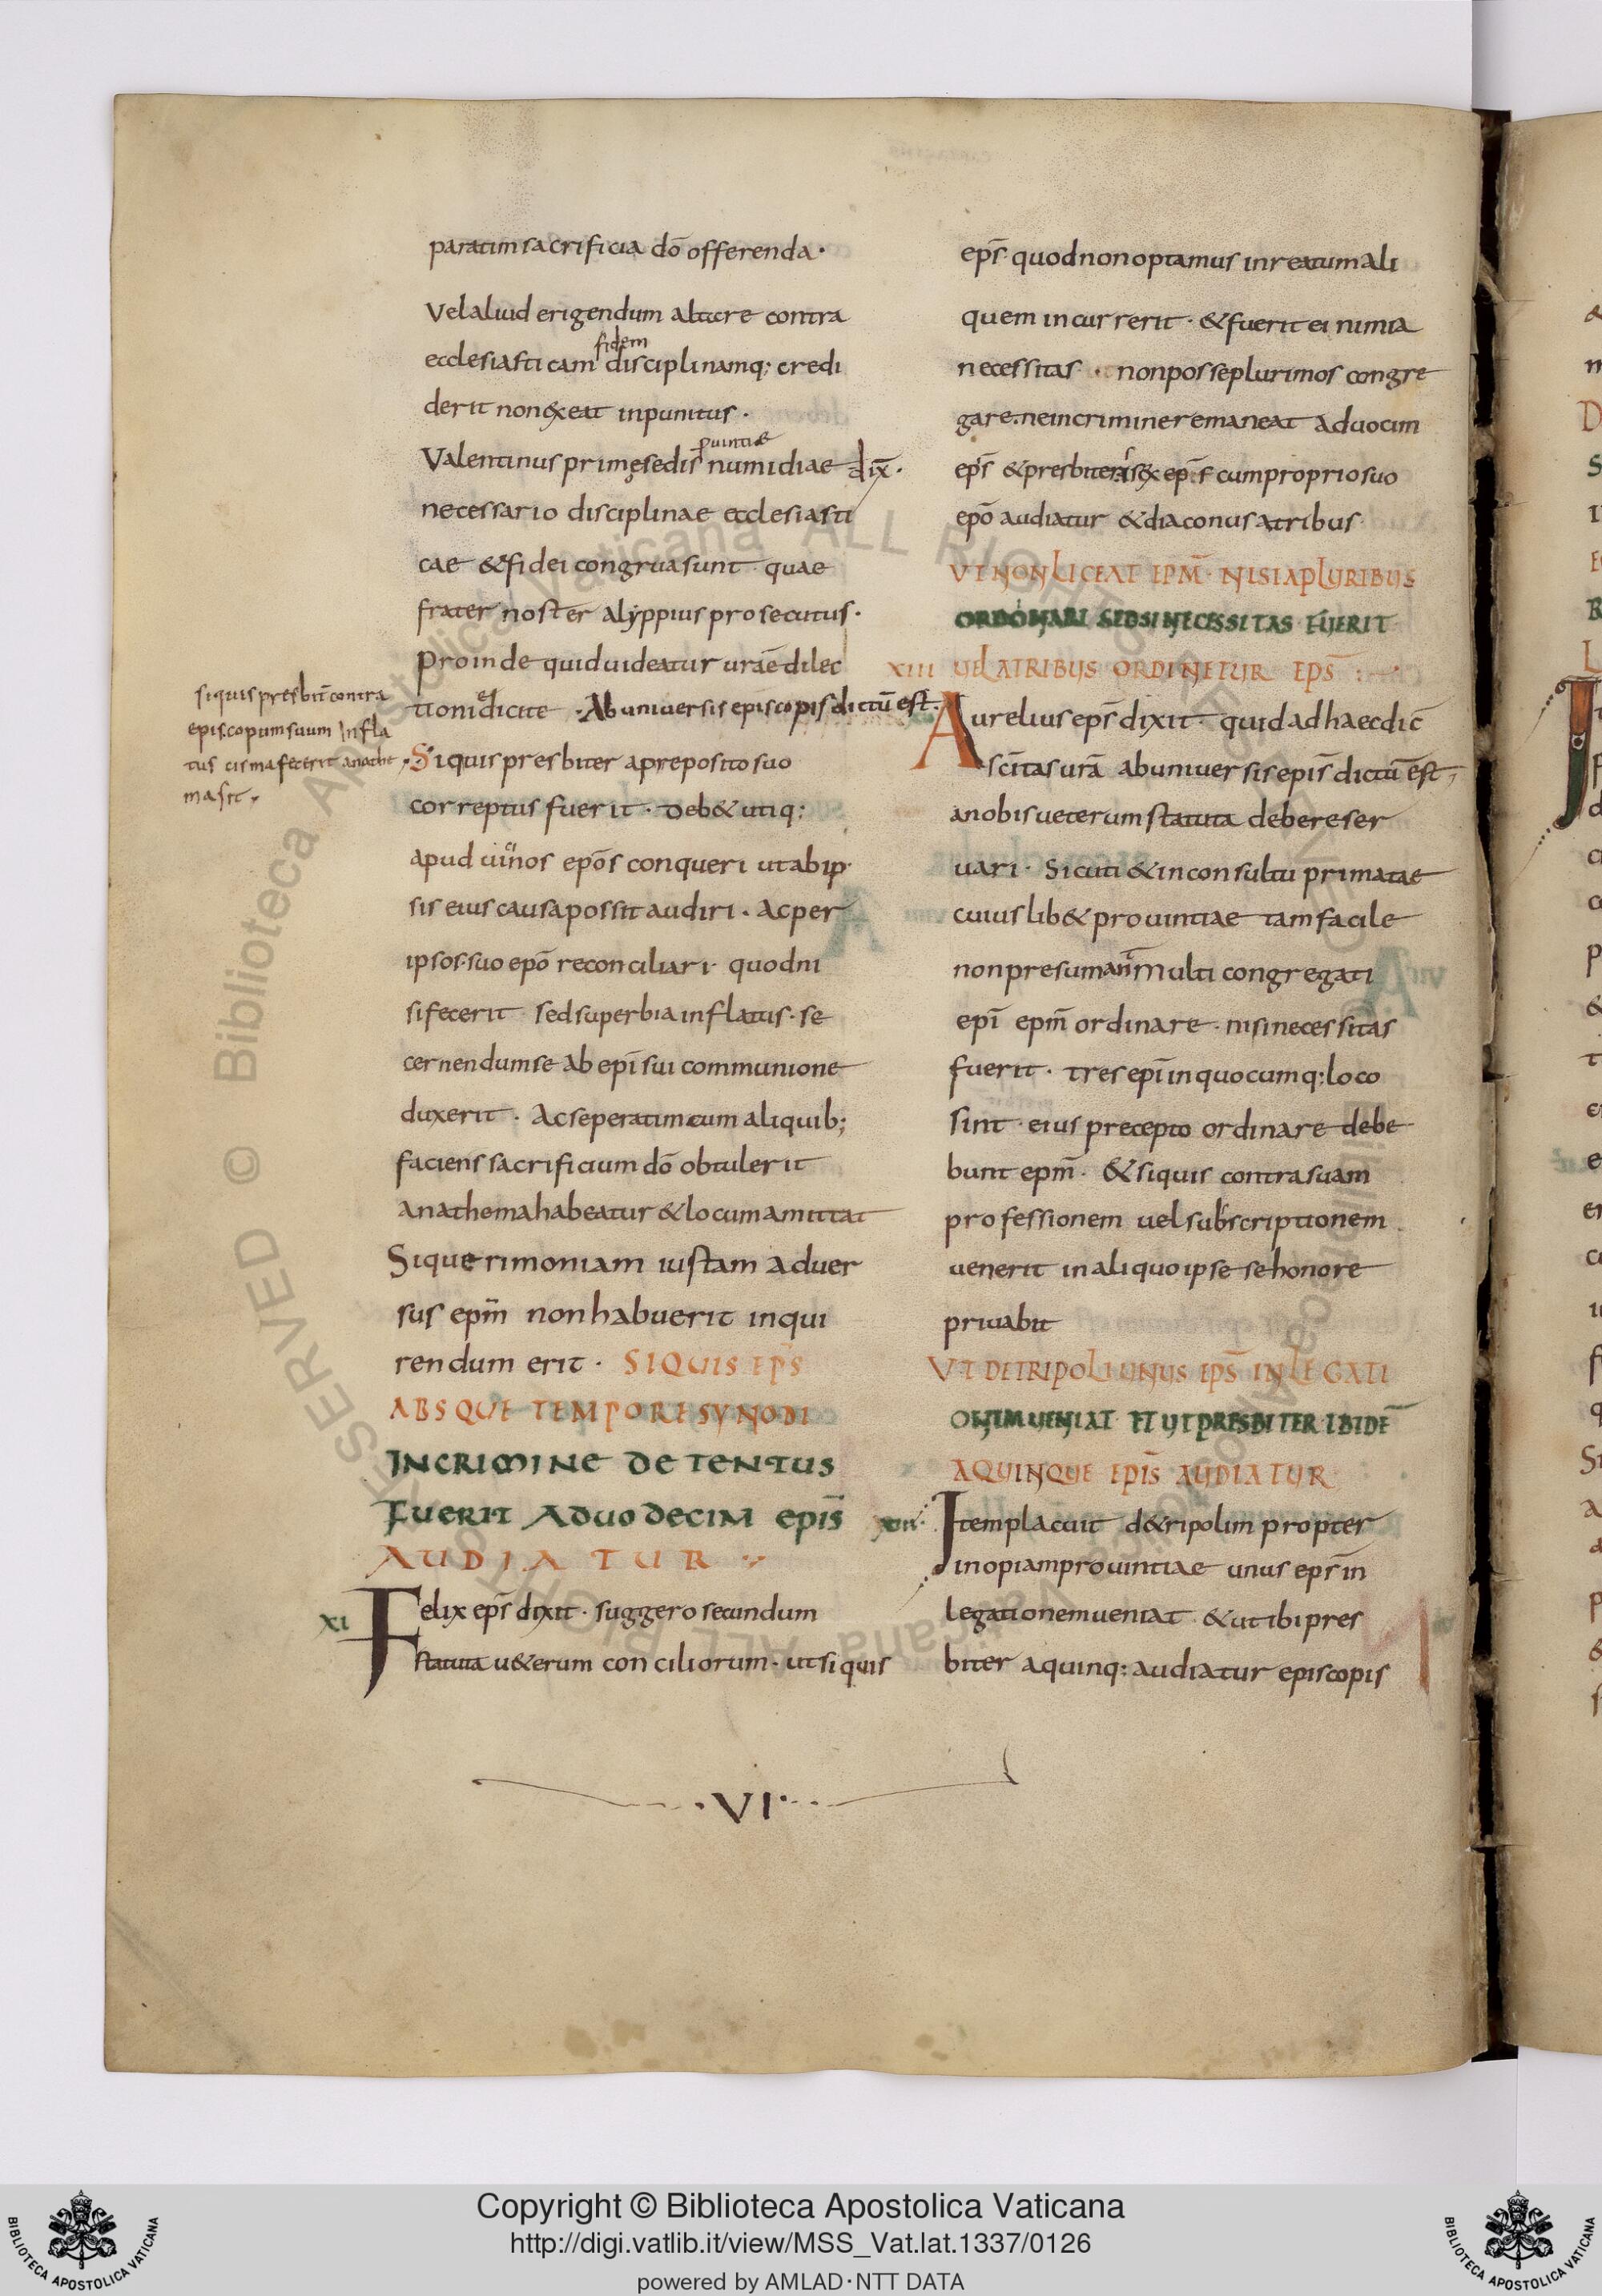 paratim sacrificia dō offerenda·
Vel aliud erigendum altare contra
fidem
ecclesiasticam disciplinamq; credi
derit non exeat inpunitus·
puintiae
Valentinus prime sedis numidiae dix̄·
necessario disciplinae ecclesiasti
cae & fidei congrua sunt quae
frater noster alyppius prosecutus·
Proinde quid uideatur urae dilec
tioni edicite · Ab uniuersis episcopis dictū est·
Siquis presbiter a preposito suo
correptus fuerit · deb& utiq:
apud uinos epōs conqueri ut ab ip
sis eius causa possit audiri · Ac per
ipsos suo epō reconciliari· quod ni
si fecerit sed superbia inflatus · se
cernendum se ab epī sui communione
duxerit · Ac seperatim cum aliquib;
faciens sacrificium dō obtulerit
anathema habeatur & locum amittat
Si querimoniam iustam aduer
sus epm̄ non habuerit inqui
rendum erit · SI QUIS EPS
ABSQUE TEMPORE SYNODI
IN CRIMINE DETENTUS
FUERIT A DUODECIM EPIS
AUDIATUR
XI Felix eps̄ dixit · suggero secundum
statuta u&erum conciliorum · ut si quis
siquis presbit̄ contra
episcopum suum infla
tus cisma fecerit anathe
ma sit
eps̄ quod non optamus in reatum ali
quem incurrerit · & fuerit ei nimia
necessitas · non posse plurimos congre
gare · ne in crimine remaneat A duocim
eps̄ & presbiter a sex eps̄ cum proprio suo
epō audiatur & diaconus a tribus
UT NON LICEAT EPM̄ NISI A PLURIBUS
ORDONARI SED SI NECESSITAS FUERIT
XIII UEL A TRIBUS ORDINETUR EPS̄
Aurelius eps̄ dixit · quid ad haec dic̄
sc̄itas urā ab uniuersis epis̄ dictū est
a nobis ueterum statuta debere ser
uari · Sicuti & inconsultu primatae
cuius lib& prouintiae tam facile
non presumant multi congregati
epī epm̄ ordinare · nisi necessitas
fuerit · tres epī in quocumq: loco
sint · eius precepto ordinare debe
bunt epm̄ · & si quis contra suam
professionem uel subscriptionem
uenerit in aliquo ipse se honore
priuabit
UT DE TRIPOLI UNUS EPS̄ IN LEGATI
ONEM UENIAT ET UT PRESBITER IBIDĒ
A QUINQUE EPIS̄ AUDIATUR
Item placuit d& ripolim propter
inopiam prouintiae unus eps̄ in
legationem ueniat & ut ibi pres
biter a quinq: audiatur episcopis
·VI·
Copyright © Biblioteca Apostolica Vaticana
http://digi.vatlib.it/view/MSS_Vat.lat.1337/0126
powered by AMLAD·NTT DATA
BIBLIOTECA APOSTOLICA VATICANA
BIBLIOTECA APOSTOLICA VATICANA